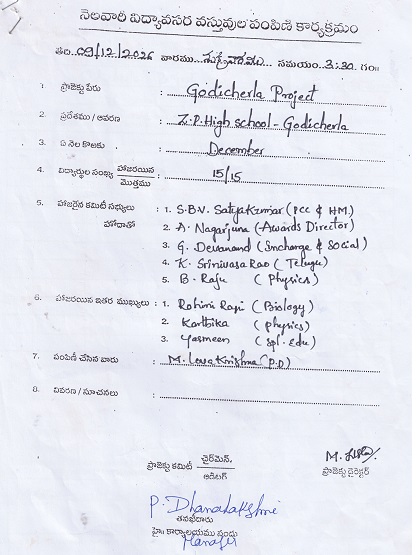 నెలవారీ విద్యావసర వస్తువుల పంపిణి కార్యక్రమం
తేది 09/12/2026 వారము శుక్రవారము సమయం. 3:30 గం॥
1. ప్రాజెక్టు పేరు : Godicherla Project
2. ప్రదేశము / ఆవరణ : Z.P. High school - Godicherla
3. ఏ నెల కొఱకు : December
4. విద్యార్థుల సంఖ్య హాజరయిన / మొత్తము : 15/15
5. హాజరైన కమిటీ సభ్యులు : 1. S.B.V. Satyakumar (PCC & HM.)
హోదాతో 2. A. Nagarjuna (Awards Director)
3. G. Devanand (Incharge & Social)
4. K. Srinivasa Rao (Telugu)
5. B. Raju (Physics)
6. హాజరయిన ఇతర ముఖ్యులు : 1. Rohini Rani (Biology)
2. Karthika (physics)
3. Yasmeen (Spl. Edu)
7. పంపిణీ చేసిన వారు : M. Lova Krishna (P.D)
8. వివరణ / సూచనలు :
ప్రాజెక్టు కమిటీ చైర్‌మెన్. / ఆడిటర్
M.
ప్రాజెక్టు డైరెక్టర్
P. Dhanalakshmi
తనఖీదారు
హై॥ కార్యాలయము నందు
Manager